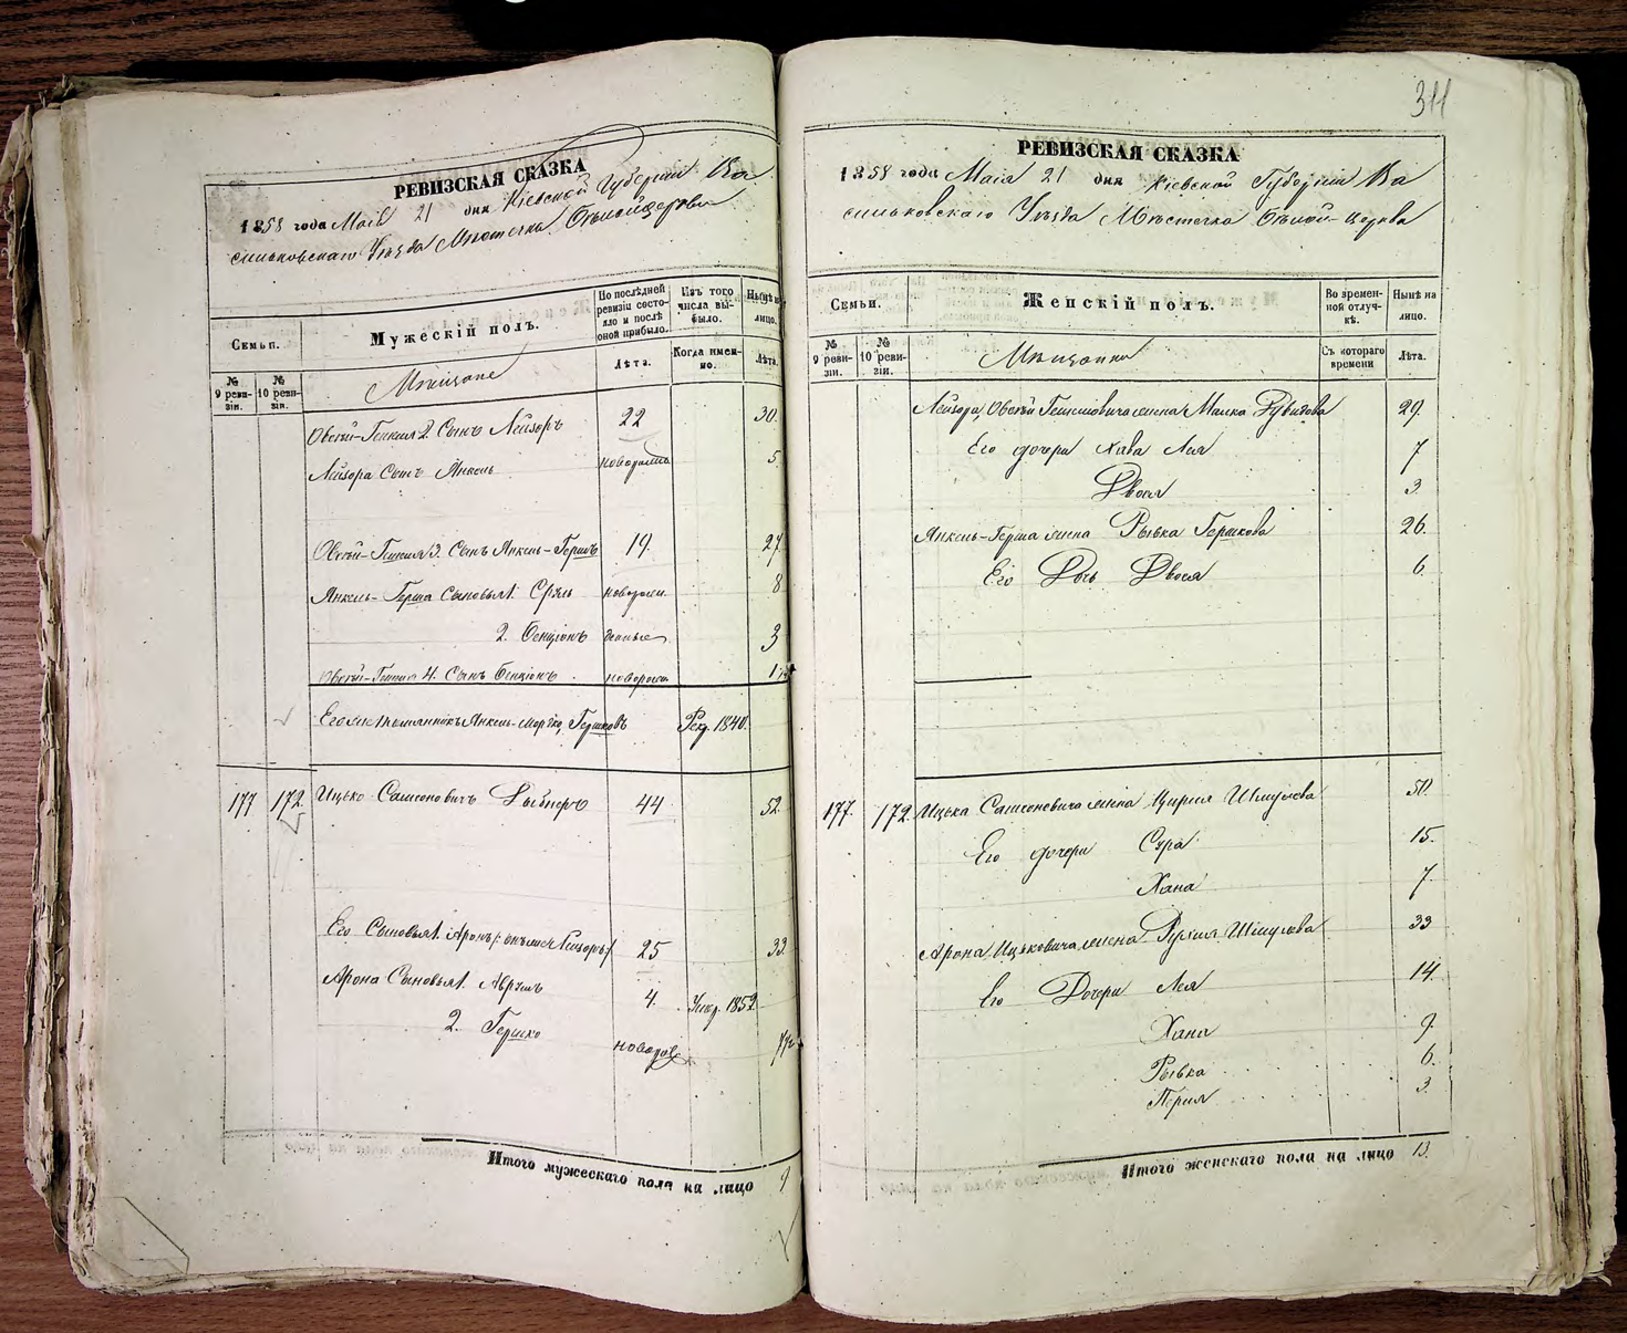 311
РЕВИЗСКАЯ СКАЗКА
1858 года Маія 21 дня Кіевской Губерніи Ва
сильковскаго Уѣзда Мѣстечка Бѣлойцеркви
Семьи.
Мужескій полъ.
По послѣдней ревизіи состояло и послѣ оной прибыло.
Изъ того числа выбыло.
Нынѣ на лицо.
№ 9 ревизіи.
№ 10 ревизіи.
Мѣщане
Лѣта.
Когда именно.
Лѣта.
Овсѣй 2. Сынъ Лейзоръ 22 30.
Лейзора Сынъ Янкель 5.
Овсѣй 3. Сынъ Янкель-Гершъ 19. 27.
Янкель-Герша Сыновья 1. Сруль новорож 8
2. Бенціонъ денные 3
Овсѣй 4. Сынъ Бенціонъ новорож 1
Его племянникъ Янкель Гершковъ Рек. 1840.
177 172. Ицько Самсоновичъ 44 52.
Его Сыновья 1. Аронъ 25 33
Арона Сыновья 1. Аврумъ 4. Умер. 1852
2. Гершко новорож
Итого мужескаго пола на лицо 9
РЕВИЗСКАЯ СКАЗКА
1858 года Маія 21 дня Кіевской Губерніи Ва
сильковскаго Уѣзда Мѣстечка Бѣлой-церкви
Семьи.
Женскій полъ.
Во временной отлучкѣ.
Нынѣ на лицо.
№ 9 ревизіи.
№ 10 ревизіи.
Мѣщанки
Съ котораго времени
Лѣта.
Лейзора Овсѣй жена Малка Рувинова 29.
Его дочери Хава Лея 7
Двося 3.
Янкель-Герша жена Рывка Гершкова 26.
Его Дочь Двося 6.
177. 172. Ицька Самсоновича жена Цирля Шмулева 50.
Его дочери Сура 15.
Хана 7.
Арона Ицьковича жена Рухля Шмулева 33
Его Дочери Лея 14.
Хана 9.
Рывка 6.
Перля 3.
Итого женскаго пола на лицо 13.